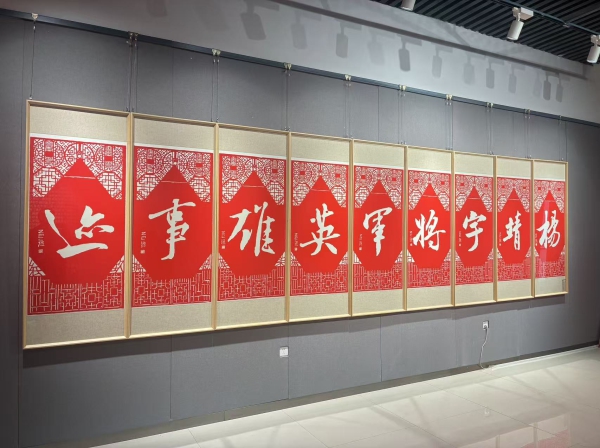 杨靖宇将军英雄事迹